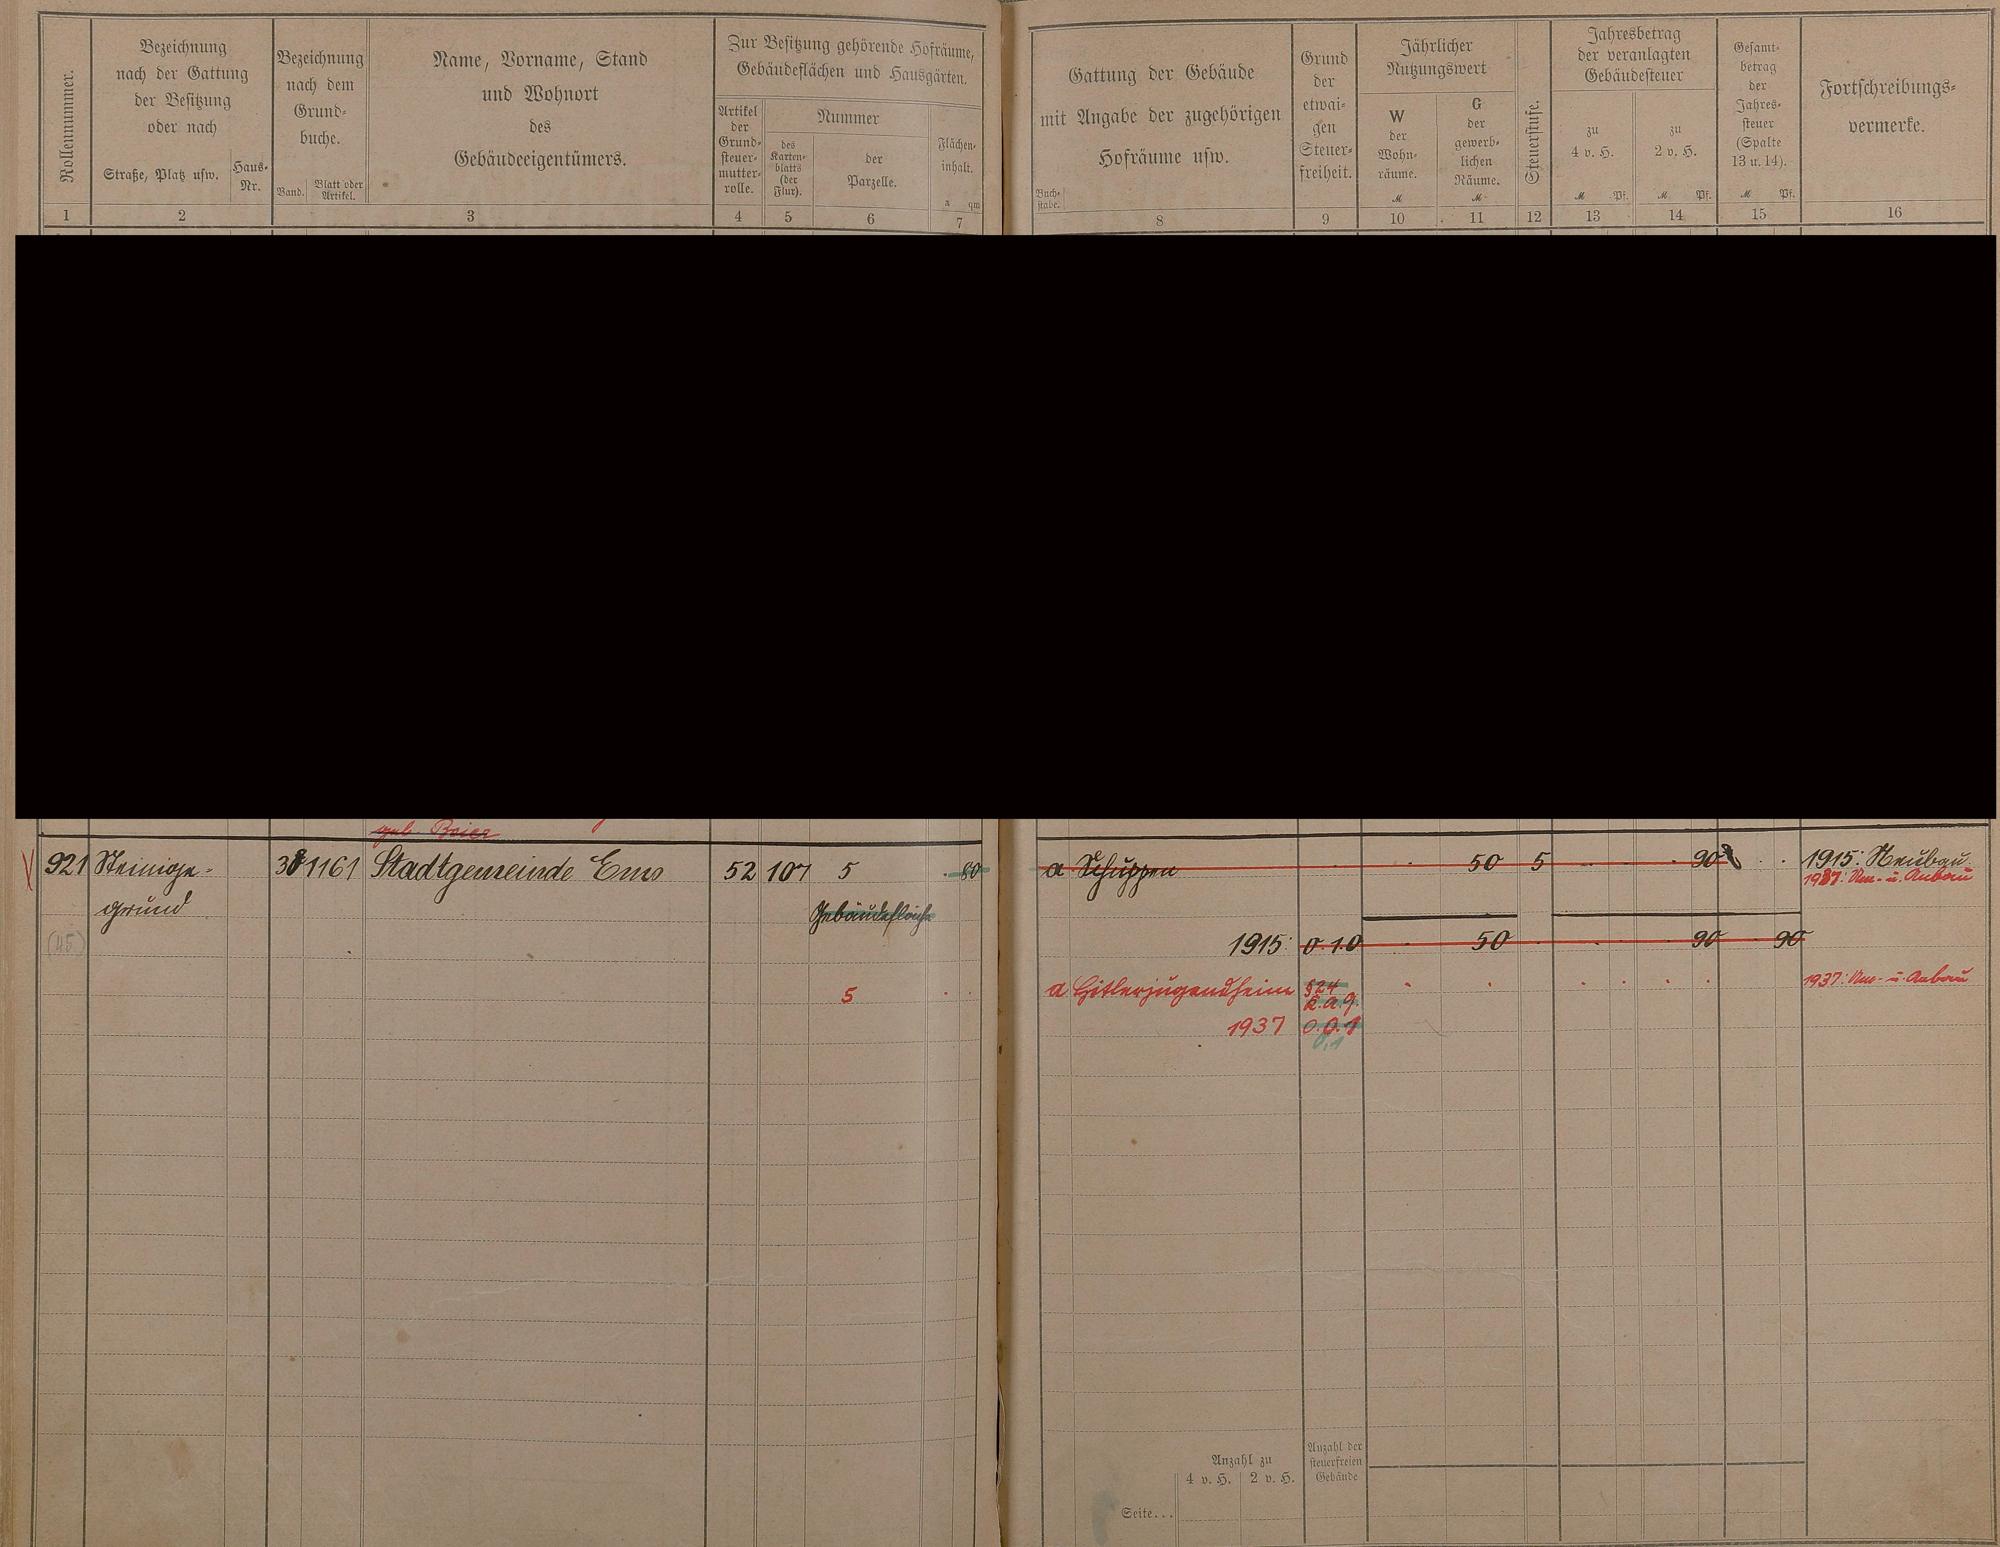 Rollennummer.
Bezeichnung
nach der Gattung
der Besitzung
oder nach
Straße, Platz usw.
Haus-
Nr.
Bezeichnung
nach dem
Grund-
buche.
Band.
Blatt oder
Artikel.
Name, Vorname, Stand
und Wohnort
des
Gebäudeeigentümers.
Zur Besitzung gehörende Hofräume,
Gebäudeflächen und Hausgärten.
Artikel
der
Grund-
steuer-
mutter-
rolle.
Nummer
des
Karten-
blatts
(der
Flur).
der
Parzelle.
Flächen-
inhalt.
a qm
1 2 3 4 5 6 7
Gattung der Gebäude
mit Angabe der zugehörigen
Hofräume usw.
Buch-
stabe.
Grund
der
etwai-
gen
Steuer-
freiheit.
Jährlicher
Nutzungswert
W
der
Wohn-
räume.
M
G
der
gewerb-
lichen
Räume.
M
Steuerstufe.
Jahresbetrag
der veranlagten
Gebäudesteuer
zu
4 v. H.
M Pf.
zu
2 v. H.
M Pf.
Gesamt-
betrag
der
Jahres-
steuer
(Spalte
13 u. 14).
M Pf.
Fortschreibungs-
vermerke.
8 9 10 11 12 13 14 15 16
geb. Beier
921 Steinige- 38 1161 Stadtgemeinde Ems 52 107 5 80
grund Gebäudefläche
(45)
5
a Schuppen 50 5 90 1915: Neubau
1937: Um- u. Anbau
1915: 0 1.0 50 90 90
a Hitlerjugendheim §24 1937: Um- u. Anbau
K.a.g.
1937 0.0.1
0,1
Anzahl zu
4 v. H. 2 v. H.
Anzahl der
steuerfreien
Gebäude
Seite...